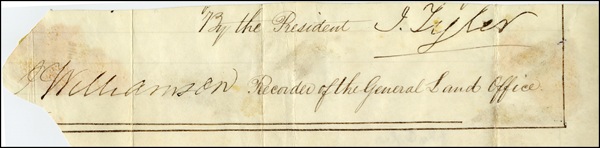 By the President J. Tyler
Williamson Recorder of the General Land Office.